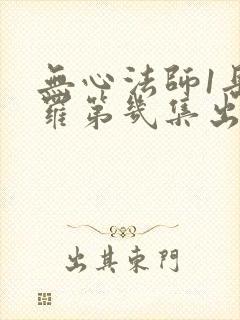 無心法師1岳
羅第幾集出
出其東門